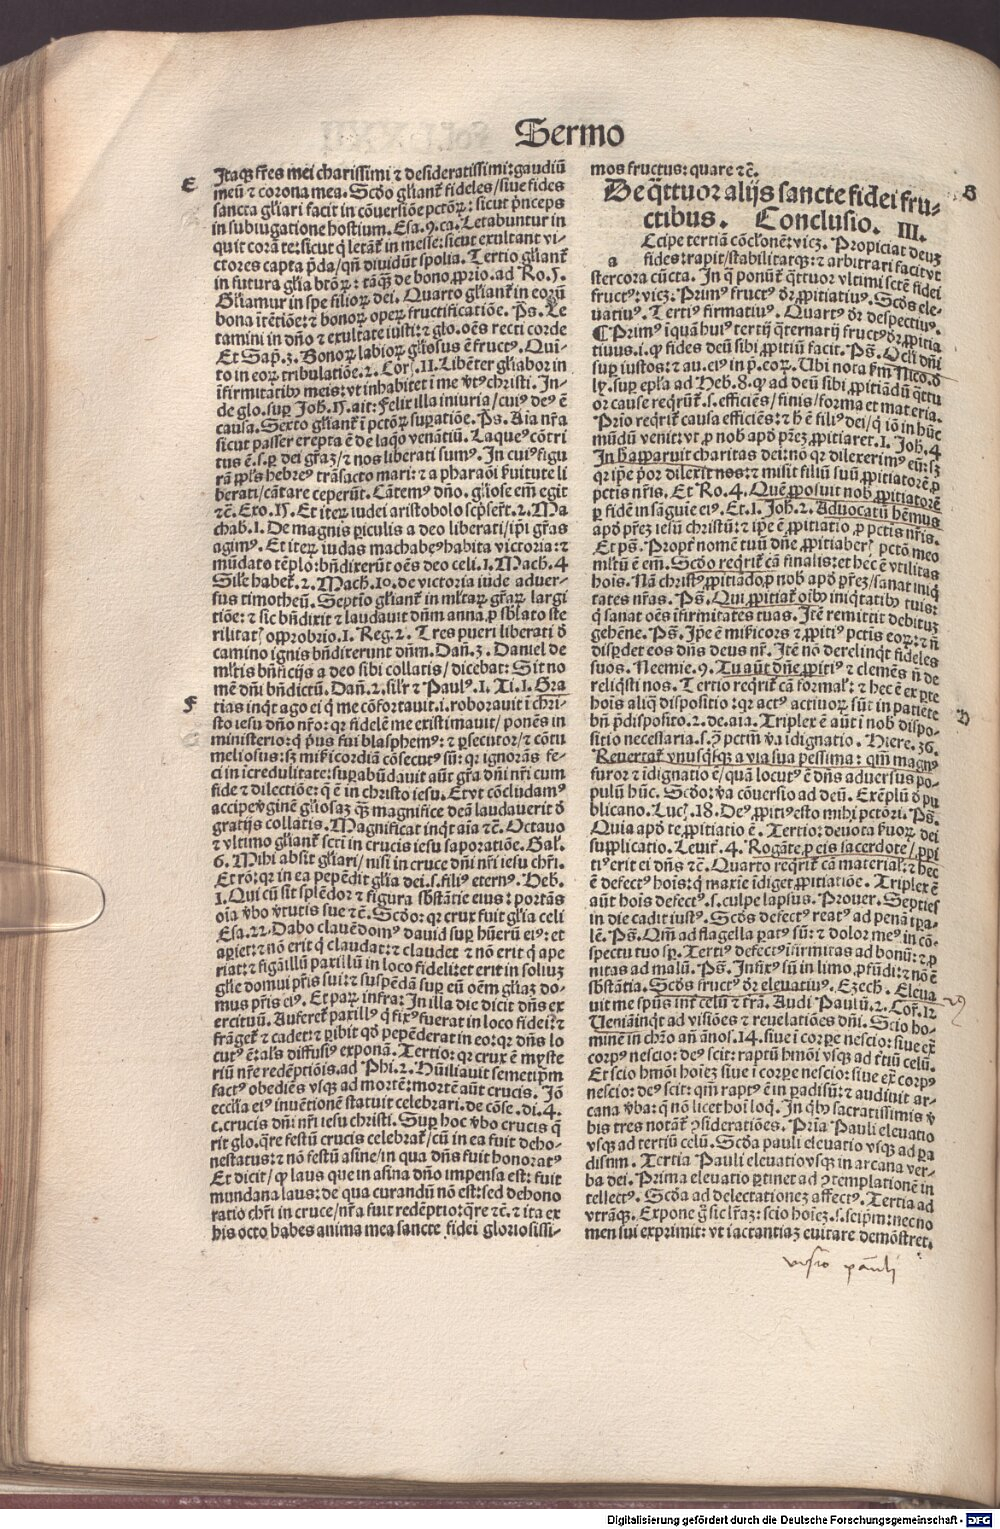 Sermo
E
Itaqꝫ fr̄es mei charissimi ⁊ desideratissimi: gaudiū
meū ⁊ corona mea. Scd̓o gl̓iant̄ fideles / siue fides
sancta gl̓iari facit in cōuersiōe pctōꝝ: sicut p̄nceps
in subiugatione hostium. Esa. 9. ca. Letabuntur in
quit corā te: sicut q̇ letāt̄ in messe: sicut exultant vi-
ctores capta p̄da / qn̄ diuidūt spolia. Tertio gl̓iant̄
in futura gl̓ia btōꝝ: tāqꝫ de bono ꝓprio. ad Ro. 5.
Gl̓iamur in spe filioꝝ dei. Quarto gl̓iant̄ in eoꝝ
bona ītētiōe: ⁊ bonoꝝ opeꝝ fructificatiōe. Ps̄. Le
tamini in dn̄o ⁊ exultate iusti: ⁊ glo. oēs recti corde
Et Sap̄. 3. Bonoꝝ labioꝝ gl̓iosus ē fruct⁹. Qui-
to in eoꝝ tribulatiōe. 2. Cor̄. 11. Libēter gl̓iabor in
īfirmitatibꝰ meis: vt inhabitet ī me v̓t⁹ christi. In-
de glo. suꝑ Joh̄. 15. ait: Felix illa iniuria / cui⁹ de⁹ ē
causa. Sexto gl̓iant̄ ī pctōꝝ suꝑatiōe. Ps̄. Aīa nr̄a
sicut passer erepta ē de laq̄o venātiū. Laque⁹ cōtri
tus ē. s. ꝑ dei gr̄aꝫ / ⁊ nos liberati sum⁹. In cui⁹ figu
rā pp̄ls hebre⁹ trāsacto mari: ⁊ a pharaōi f̓uitute li
berati / cātare ceperūt. Cātem⁹ dn̄o. gl̓iose em̄ egit
⁊c̄. Exo. 15. Et iteꝝ iudei aristobolo scp̄serūt. 2. Ma
chab. 1. De magnis ꝑiculis a deo liberati / ip̄i gr̄as
agim⁹. Et iteꝝ iudas machabe⁹ habita victoria: ⁊
mūdato tēplo: bn̄dixerūt oēs deo celi. 1. Mach. 4
Sil̓e habet̄. 2. Mach. 10. de victoria iude aduer-
sus timotheū. Septīo gl̓iant̄ in ml̓taꝝ gr̄aꝝ largi
tiōe: ⁊ sic bn̄dixit ⁊ laudauit dn̄m anna. ꝓ sb̓lato ste
rilitat̄ opprobrio. 1. Reg. 2. Tres pueri liberati d̓
camino ignis bn̄dixerunt dn̄m. Dan̄. 3. Daniel de
ml̓tis bn̄ficijs a deo sibi collatis / dicebat: Sit no
mē dn̄i bn̄dictū. Dan̄. 2. sil̓r ⁊ Paul⁹. 1. Ti. 1. Gra
F
tias inq̄t ago ei q̇ me cōfortauit. i. roborauit ī chri-
sto iesu dn̄o nr̄o: qꝛ fidelē me existimauit / ponēs in
ministerio: q̇ p̄us fui blasphem⁹: ⁊ ꝑsecutor / ⁊ cōtu
meliosus: sꝫ mīcordiā cōsecut⁹ sū: qꝛ ignorās fe-
ci in icredulitate: suꝑabūdauit aūt gr̄a dn̄i nr̄i cum
fide ⁊ dilectiōe: q̄ ē in christo iesu. Et vt cōcludam⁹
accipe v̓ginē gl̓iosaꝫ q̄ꝫ magnifice deū laudauerit d̓
gratijs collatis. Magnificat inq̄t aīa ⁊c̄. Octauo
⁊ vltimo gl̓iant̄ scti̅ in crucis iesu saporatiōe. Gal̄.
6. Mihi absit gl̓iari / nisi in cruce dn̄i nr̄i iesu chr̄i.
Et rō: qꝛ in ea pepēdit gl̓ia dei. s. fili⁹ etern⁹. Heb.
1. Qui cū sit splēdor ⁊ figura sb̓stātie eius: portās
oīa v̓bo v̓tutis sue ⁊c̄. Scd̓o: qꝛ crux fuit gl̓ia celi
Esa. 22. Dabo clauē dom⁹ dauid suꝑ hūerū ei⁹: et
aꝑiet: ⁊ nō erit q̇ claudat: ⁊ claudet ⁊ nō erit q̇ ape
riat: ⁊ figā illū paxillū in loco fideli: et erit in soliuꝫ
gl̓ie domui pr̄is sui: ⁊ suspēdā suꝑ eū oēm gl̓iaꝫ do-
mus pr̄is ei⁹. Et paꝝ infra: In illa die dicit dn̄s ex
ercituū. Auferet̄ paxill⁹ q̇ fix⁹ fuerat in loco fideli: ⁊
frāget̄ ⁊ cadet: ⁊ ꝑibit qd̓ pepēderat in eo: qꝛ dn̄s lo
cut⁹ ē: al̓s diffusi⁹ exponā. Tertio: qꝛ crux ē myste
riū nr̄e redēptiōis. ad Phi. 2. Hūiliauit semetip̄m
fact⁹ obediēs vsqꝫ ad mortē: mortē aūt crucis. Jō
eccl̓ia ei⁹ inuētionē statuit celebrari. de cōse. di. 4.
c. crucis dn̄i nr̄i iesu christi. Suꝑ hoc v̓bo crucis q̄
rit glo. q̄re festū crucis celebrat̄ / cū in ea fuit deho-
nestatus: ⁊ nō festū asine / in qua dn̄s fuit honorat⁹
Et dicit / ꝙ laus que in asina dn̄o impensa est: fuit
mundana laus: de qua curandū nō est: sed dehono
ratio chr̄i in cruce / nr̄a fuit redēptio: q̄re ⁊c̄. ⁊ ita ex
his octo habes anima mea sancte fidei gloriosissi-
mos fructus: quare ⁊c̄.
De q̄ttuor alijs sancte fidei fru-
ctibus. Conclusio. III.
B
a
Ccipe tertiā cōcl̓onē: vicꝫ. Propiciat deuꝫ
fides: rapit / stabilitatqꝫ: ⁊ arbitrari facit vt
stercora cūcta. In q̄ ponūt̄ q̄ttuor vltimi scte̅ fidei
fruct⁹: vicꝫ. Prim⁹ fruct⁹ dr̄ ꝓpitiatiu⁹. Scd̓s ele-
uatiu⁹. Terti⁹ firmatiu⁹. Quart⁹ dr̄ despectiu⁹.
¶ Prim⁹ īquā hui⁹ tertij q̄ternarij fruct⁹ dr̄ ꝓpitia
tiuus. i. ꝙ fides deū sibi ꝓpitiū facit. Ps̄. Ocl̓i dn̄i
suꝑ iustos: ⁊ au. ei⁹ in p̄. eoꝝ. Ubi nota f̄m Nico. d̓
ly. suꝑ epl̓a ad Heb. 8. ꝙ ad deū sibi ꝓpitiādū q̄ttu
or cause req̇rūt̄. s. efficiēs / finis / forma et materia.
Prīo req̇rit̄ causa efficiēs: ⁊ h̄ ē fili⁹ dei / q̇ iō in hūc
mūdū venit: vt ꝓ nob̓ apd̓ pr̄eꝫ ꝓpitiaret. 1. Joh̄. 4
In h̄ apparuit charitas dei: nō qꝛ dilexerim⁹ eū: sꝫ
qꝛ ip̄e p̄or dilexit nos: ⁊ misit filiū suū ꝓpitiatorē ꝓ
pctis nr̄is. Et Ro. 4. Quē ꝓposuit nob̓ ꝓpitiatorē
ꝑ fidē in sāguie ei⁹. Et. 1. Joh̄. 2. Aduocatū hēmus
apd̓ pr̄eꝫ iesū christū: ⁊ ip̄e ē ꝓpitiatio ꝓ pctis nr̄is.
Et ps̄. Propt̄ nomē tuū dn̄e ꝓpitiaber̄ pctō meo
ml̓tū ē em̄. Scd̓o req̇rit̄ cā finalis: et hec ē vtilitas
hoīs. Nā christ⁹ ꝓpitiādo ꝓ nob̓ apd̓ pr̄eꝫ / sanat iniq̇
tates nr̄as. Ps̄. Qui ꝓpitiat̄ oībꝰ iniq̇tatibꝰ tuis:
q̇ sanat oēs īfirmitates tuas. Itē remittit debituꝫ
gehēne. Ps̄. Ip̄e ē mīicors ⁊ ꝓpiti⁹ pctis eoꝝ: ⁊ nō
disp̄det eos dn̄s deus nr̄. Itē nō derelinq̇t fideles
suos. Neemie. 9. Tu aūt dn̄e ꝓpiti⁹ ⁊ clemēs n̄ de
reliq̇sti nos. Tertio req̇rit̄ cā formal̄: ⁊ hec ē ex ꝑte
hoīs aliq̄ dispositio: qꝛ act⁹ actiuoꝝ sūt in patiēte
bn̄ p̄disposito. 2. de. aīa. Triplex ē aūt ī nob̓ dispo-
sitio necessaria. s. ꝯ̄ pctm̄ v̓a īdignatio. Hiere. 36.
Reuertat̄ vnusq̇sqꝫ a via sua pessima: qm̄ magn⁹
furor ⁊ īdignatio ē / quā locut⁹ ē dn̄s aduersus po-
pulū hūc. Scd̓o: v̓a cōuersio ad deū. Exēplū d̓ pu
blicano. Luc̄. 18. De⁹ ꝓpiti⁹ esto mihi pctōri. Ps̄.
Quia apd̓ te ꝓpitiatio ē. Tertio: deuota f̓uoꝝ dei
supplicatio. Leuit̄. 4. Rogāte ꝓ eis sacerdote / ꝓpi
ti⁹ erit ei dn̄s ⁊c̄. Quarto req̇rit̄ cā material̄: ⁊ hec
ē defect⁹ hoīs: q̇ maxīe īdiget ꝓpitiatiōe. Triplex ē
aūt hoīs defect⁹. s. culpe lapsus. Prouer. Septies
in die cadit iust⁹. Scd̓s defect⁹ reat⁹ ad penā tꝑa-
lē. Ps̄. Qm̄ ad flagella ꝑat⁹ sū: ⁊ dolor me⁹ in cō-
spectu tuo sꝑ. Terti⁹ defect⁹ īfirmitas ad bonū: ⁊ ꝓ
nitas ad malū. Ps̄. Infix⁹ sū in limo ꝓfūdi: ⁊ nō ē
sb̓stātia. Scd̓s fruct⁹ dr̄ eleuatiu⁹. Ezech. Eleua
uit me sp̄us int̄ celū ⁊ t̄rā. Audi Paulū. 2. Cor̄. 12
Veniā inq̄t ad visiōes ⁊ reuelatiōes dn̄i. Scio ho-
minē in chr̄o an̄ ānos. 14. siue ī corꝑe nescio: siue ex̄
corp⁹ nescio: de⁹ scit: raptū hmōi vsqꝫ ad t̓tiū celū.
Et scio hmōi hoīeꝫ siue ī corꝑe nescio: siue ex̄ corp⁹
nescio: de⁹ scit: qm̄ rapt⁹ ē in ꝑadisū: ⁊ audiuit ar-
cana v̓ba: q̄ nō licet hoī loq̇. In q̇bꝰ sacratissimis v̓
bis tres notāt̄ ꝯsideratiōes. Prīa Pauli eleuatio
vsqꝫ ad tertiū celū. Scd̓a pauli eleuatio vsqꝫ ad ꝑa
disum. Tertia Pauli eleuatio vsqꝫ in arcana ver-
ba dei. Prima eleuatio ꝑtinet ad ꝯtemplationē in
tellect⁹. Scd̓a ad delectationeꝫ affect⁹. Tertia ad
vtrāqꝫ. Expone g̊ sic lr̄aꝫ: scio hoīeꝫ. s. seip̄m: nec no
men sui exprimit: vt iactantiaꝫ euitare demōstret.
D
visio pauli
Digitalisierung gefördert durch die Deutsche Forschungsgemeinschaft - DFG